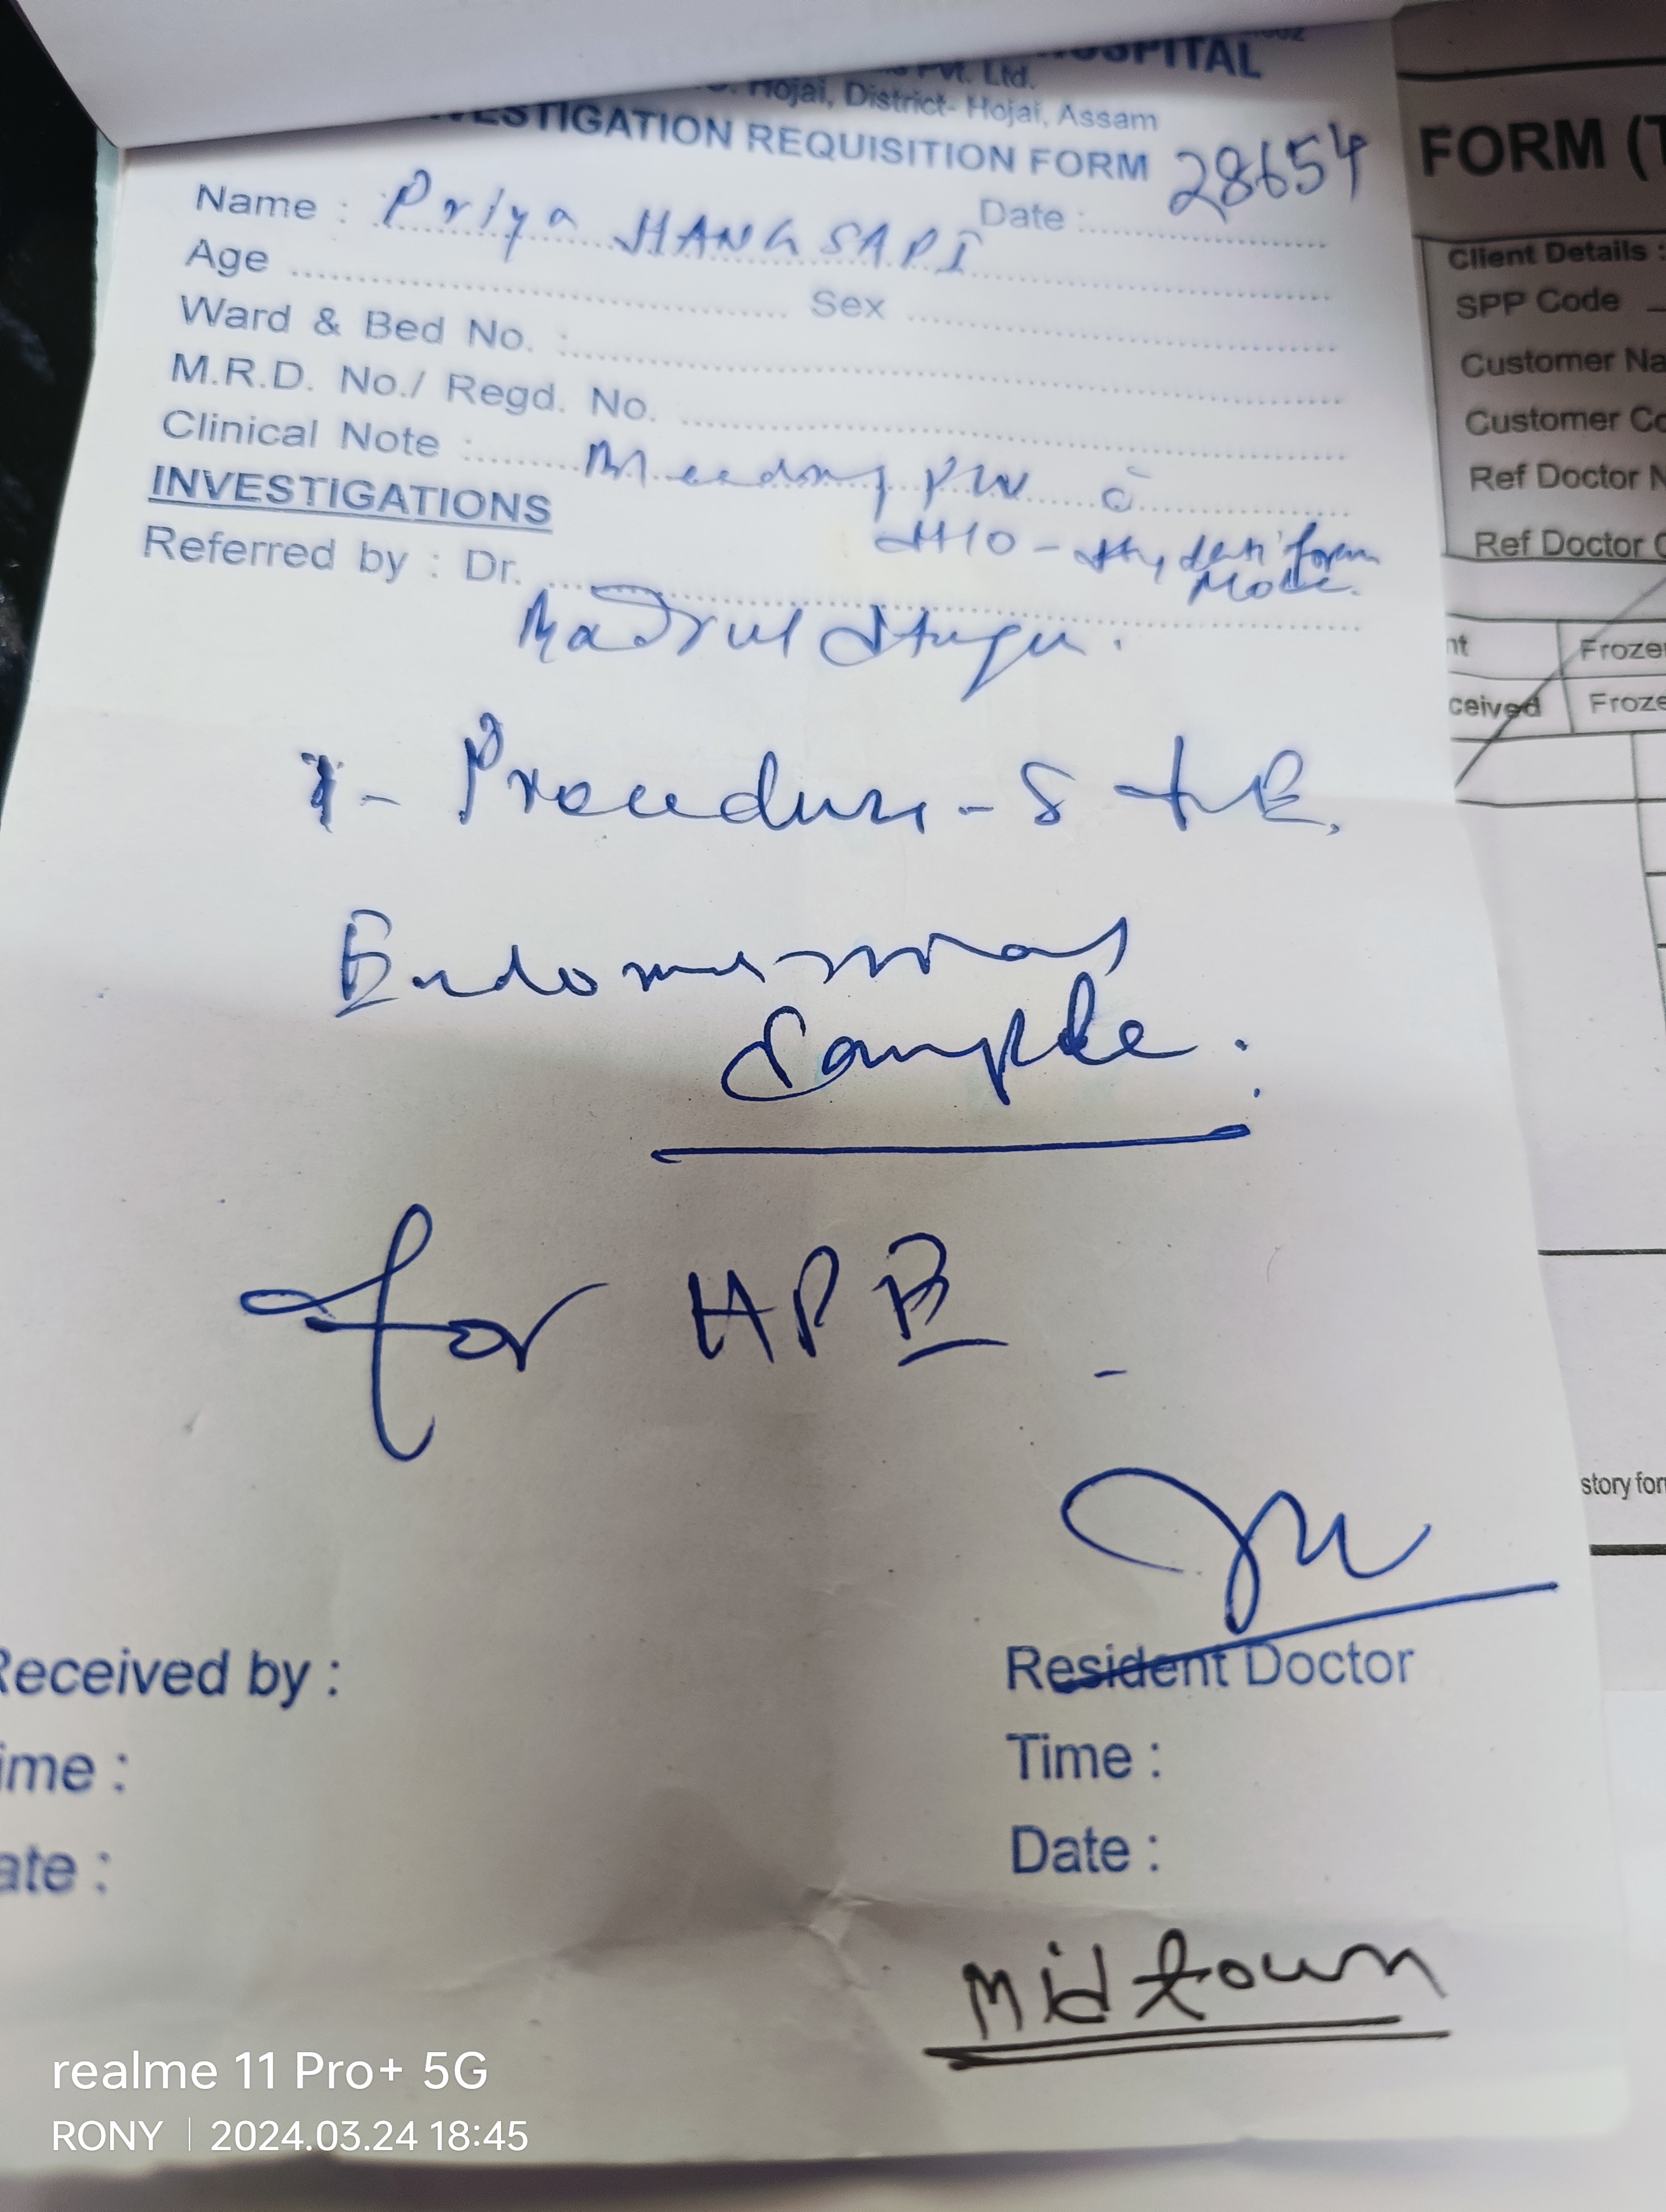 HOSPITAL
Pvt. Ltd.
Hojai, District- Hojai, Assam
INVESTIGATION REQUISITION FORM 28654
Name : Priya HANGSAPI Date :
Age Sex
Ward & Bed No. :
M.R.D. No./ Regd. No.
Clinical Note : Bleeding P/V c̄
H/O - Hydatiform
Mole.
INVESTIGATIONS
Referred by : Dr.
1- Procedure - S + E.
Endometrial
Sample.
for HPE
Received by :
Resident Doctor
Time :
Time :
Date :
Date :
Midtown
FORM (T
Client Details :
SPP Code
Customer Na
Customer Co
Ref Doctor N
Ref Doctor C
nt Froze
ceived Froze
story for
realme 11 Pro+ 5G
RONY | 2024.03.24 18:45